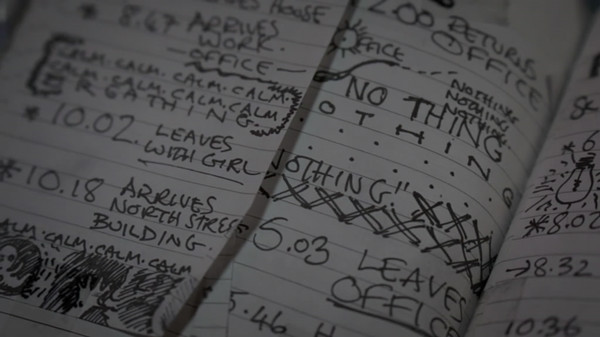 HOUSE
* 8.47 ARRIVES
WORK.
OFFICE
CALM. CALM. CALM. CALM.
CALM. CALM. CALM. CALM.
BREATHING.
* 10.02. LEAVES
WITH GIRL
* 10.18 ARRIVES
NORTH STREET
BUILDING.
CALM. CALM. CALM. CALM
2.00 RETURNS
OFFICE
OFFICE
NOTHING
NOTHING
NOTHING.
NO THING
NOTHING
NOTHING"
5.03 LEAVES
OFFICE
5.46
* 6
* 8.02
→ 8.32
10.36